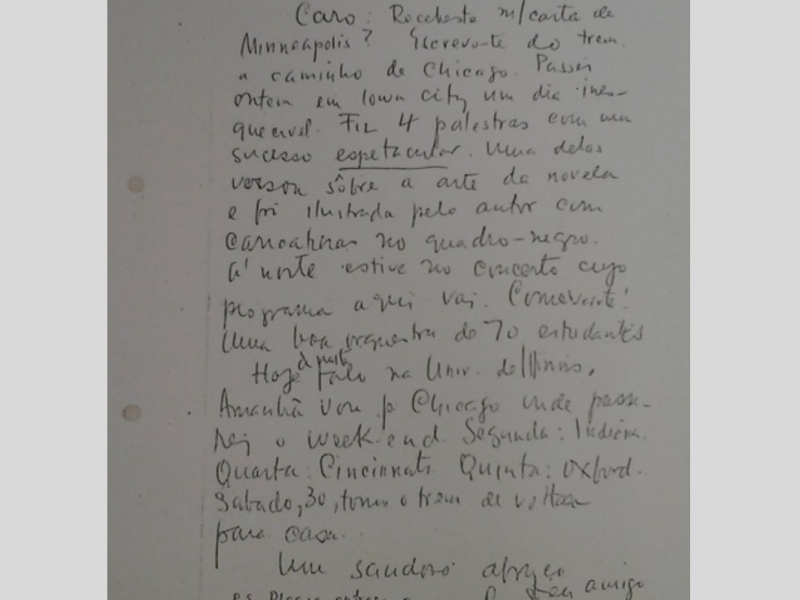 Caro: Recebeste m/carta de
Minneapolis? Escrevo-te do trem,
a caminho de Chicago. Passei
ontem em Iowa City um dia ines-
quecível. Fiz 4 palestras com um
sucesso espetacular. Uma delas
versou sôbre a arte da novela
e foi ilustrada pelo autor com
caricaturas no quadro-negro.
À noite estive no concerto cujo
programa aqui vai. Comovente!
Uma boa orquestra de 70 estudantes
à noite
Hoje falo na Univ. de Illinois.
Amanhã vou p Chicago onde passa-
rei o week-end. Segunda: Indiana.
Quarta: Cincinnati. Quinta: Oxford.
Sabado, 30, tomo o trem de volta
para casa.
Um saudoso abraço
P.S. do teu amigo